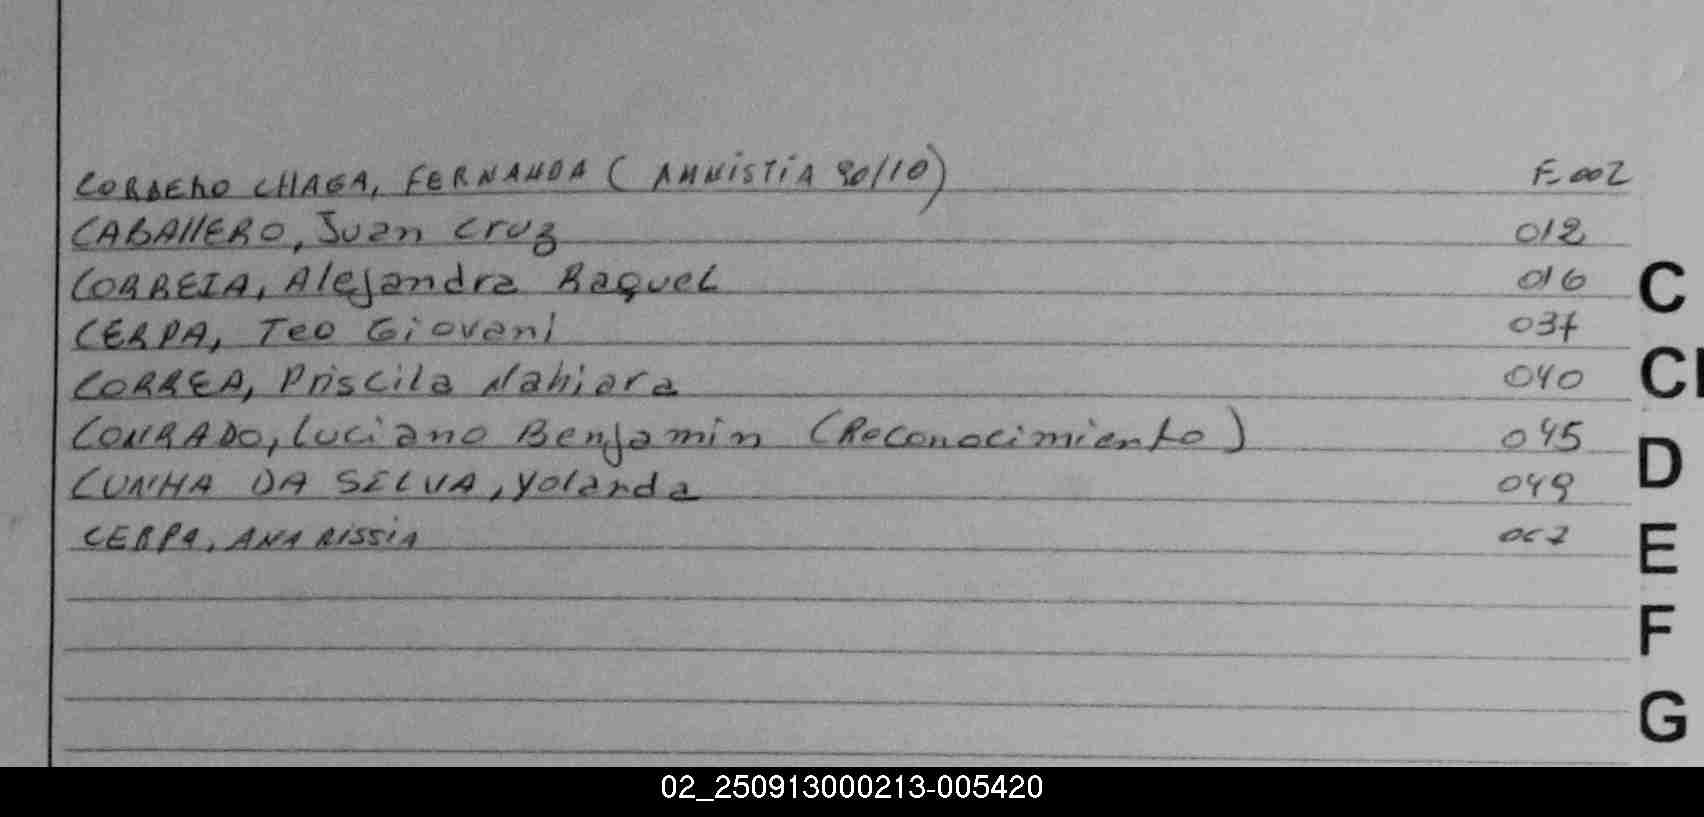 CORDERO CHAGA, FERNANDA (AMNISTIA 90/10) F-002
CABAllERO, Juan cruz 012
CORREIA, Alejandra Raquel 016
CERPA, Teo Giovani 037
CORREA, Priscila Nahiara 040
CONRADO, Luciano Benjamin (Reconocimiento) 045
CUNHA DA SILVA, yolanda 049
CERPA, ANA RISSIA
C
D
E
F
G
02_250913000213-005420